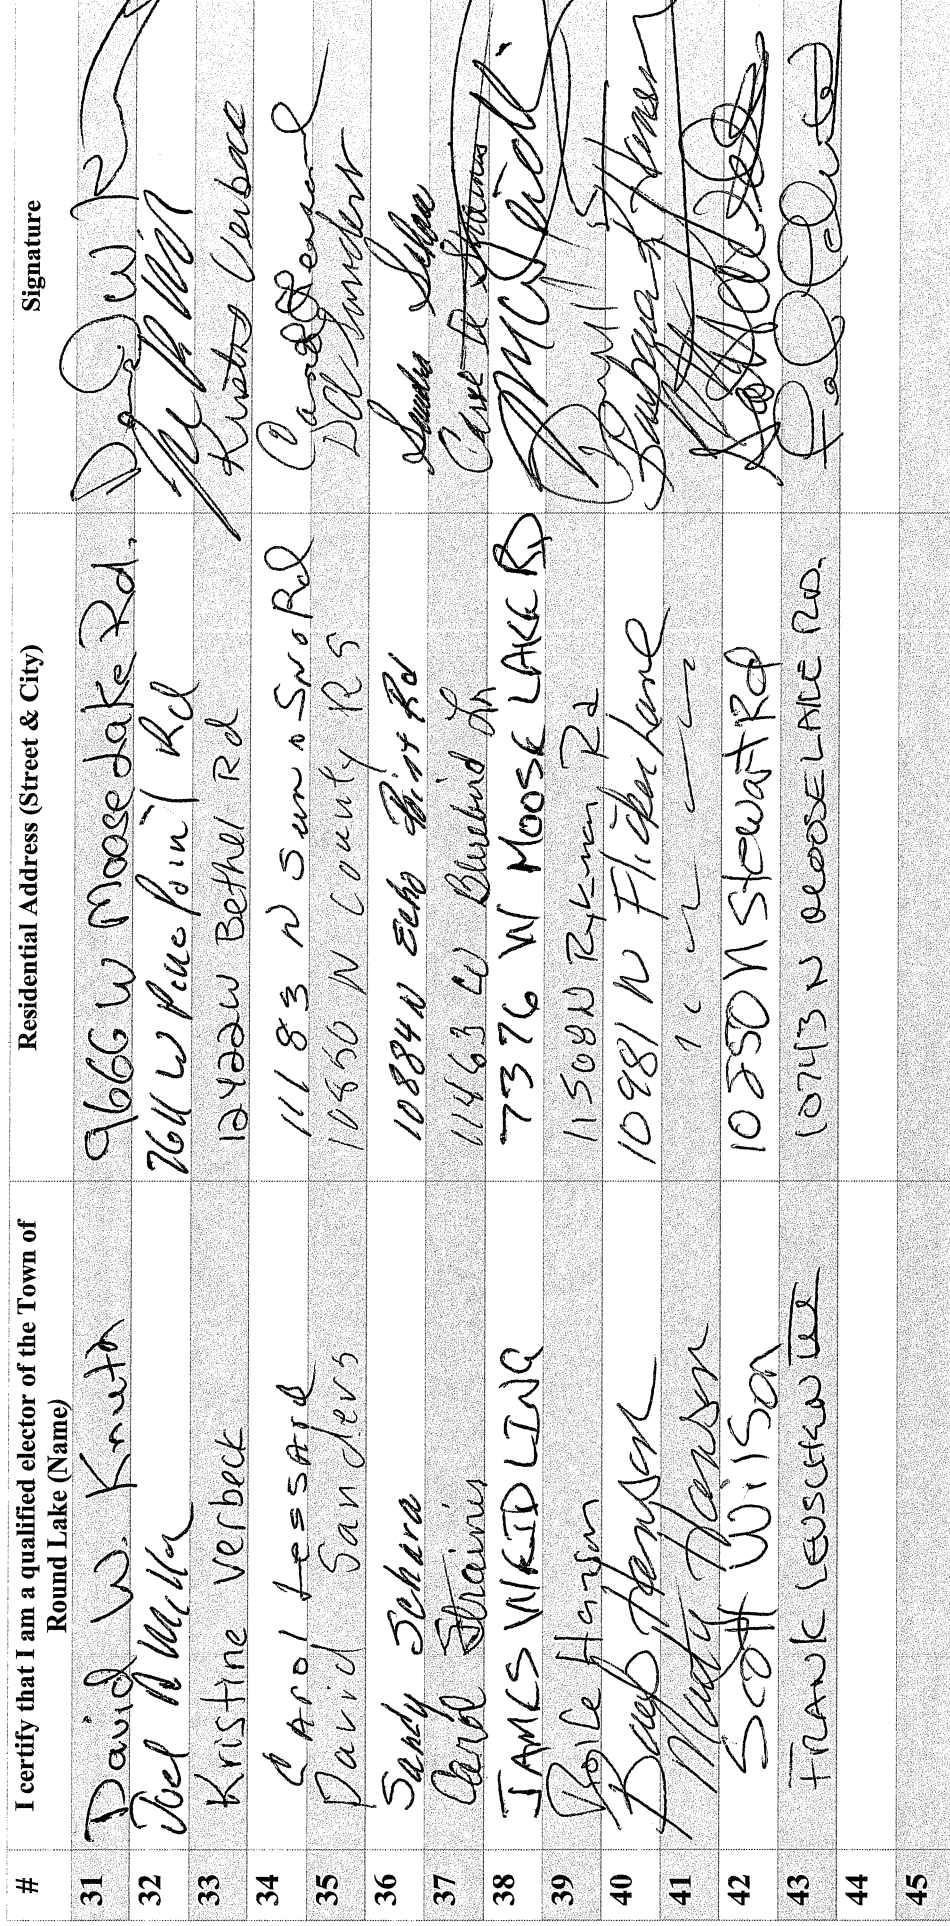 # I certify that I am a qualified elector of the Town of Round Lake (Name) Residential Address (Street & City) Signature
31 David W. Knuth 9666 W Moose Lake Rd.
32 Joel A Miller 7611 W Pine Point Rd
33 Kristine Verbeck 12422W Bethel Rd Kristine Verbeck
34 Carol Lessard 11183 N Sun n Sno Rd Carol Lessard
35 David Sanders 10850 N County Rd S
36 Sandy Schara 10884N Echo Point Rd Sandra Schara
37 Carol Strains 11463 W Bluebird Ln Carol Strains
38 JAMES WEIDLING 7376 W MOOSE LAKE RD
39 Hanson 11508N Rykman Rd
40 Barb Hanson 10981 N Flicker Lane Barbara Hanson
41 Marty Hanson " " " "
42 Scott Wilson 10250 N Stewart Rd
43 FRANK LEUSCHEN III 10743 N MOOSE LAKE RD.
44
45